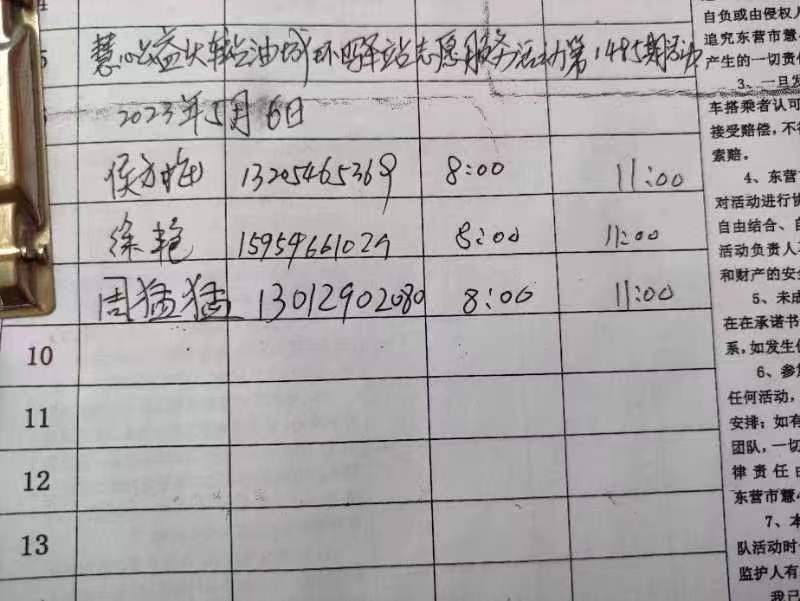 5
慧心益大转盘油城环卫驿站志愿服务活动第1495期活动
2023年5月6日
侯 13205465369 8:00 11:00
徐艳 1595466102 8:00 11:00
周猛猛 13012902080 8:00 11:00
10
11
12
13
自负或由侵权人
追究东营市慧
产生的一切责任
3、一旦发
车搭乘者认可
接受赔偿，不
索赔。
4、东营
对活动进行协
自由结合、自
活动负责人
和财产的安全
5、未成
在在承诺书
系，如发生
6、参加
任何活动，
安排；如有
团队，一切
律责任由
东营市慧
7、本
队活动时
监护人有
我已